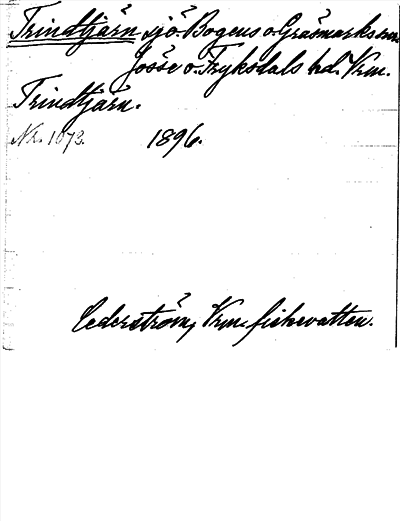 Trindtjärn sjö. Bogens o. Gräsmarks snr.
Jösse o. Fryksdals hd. Vrm.
Trindtjärn.
Nr. 1073. 1896.
Cederström, Vrm. fiskevatten.